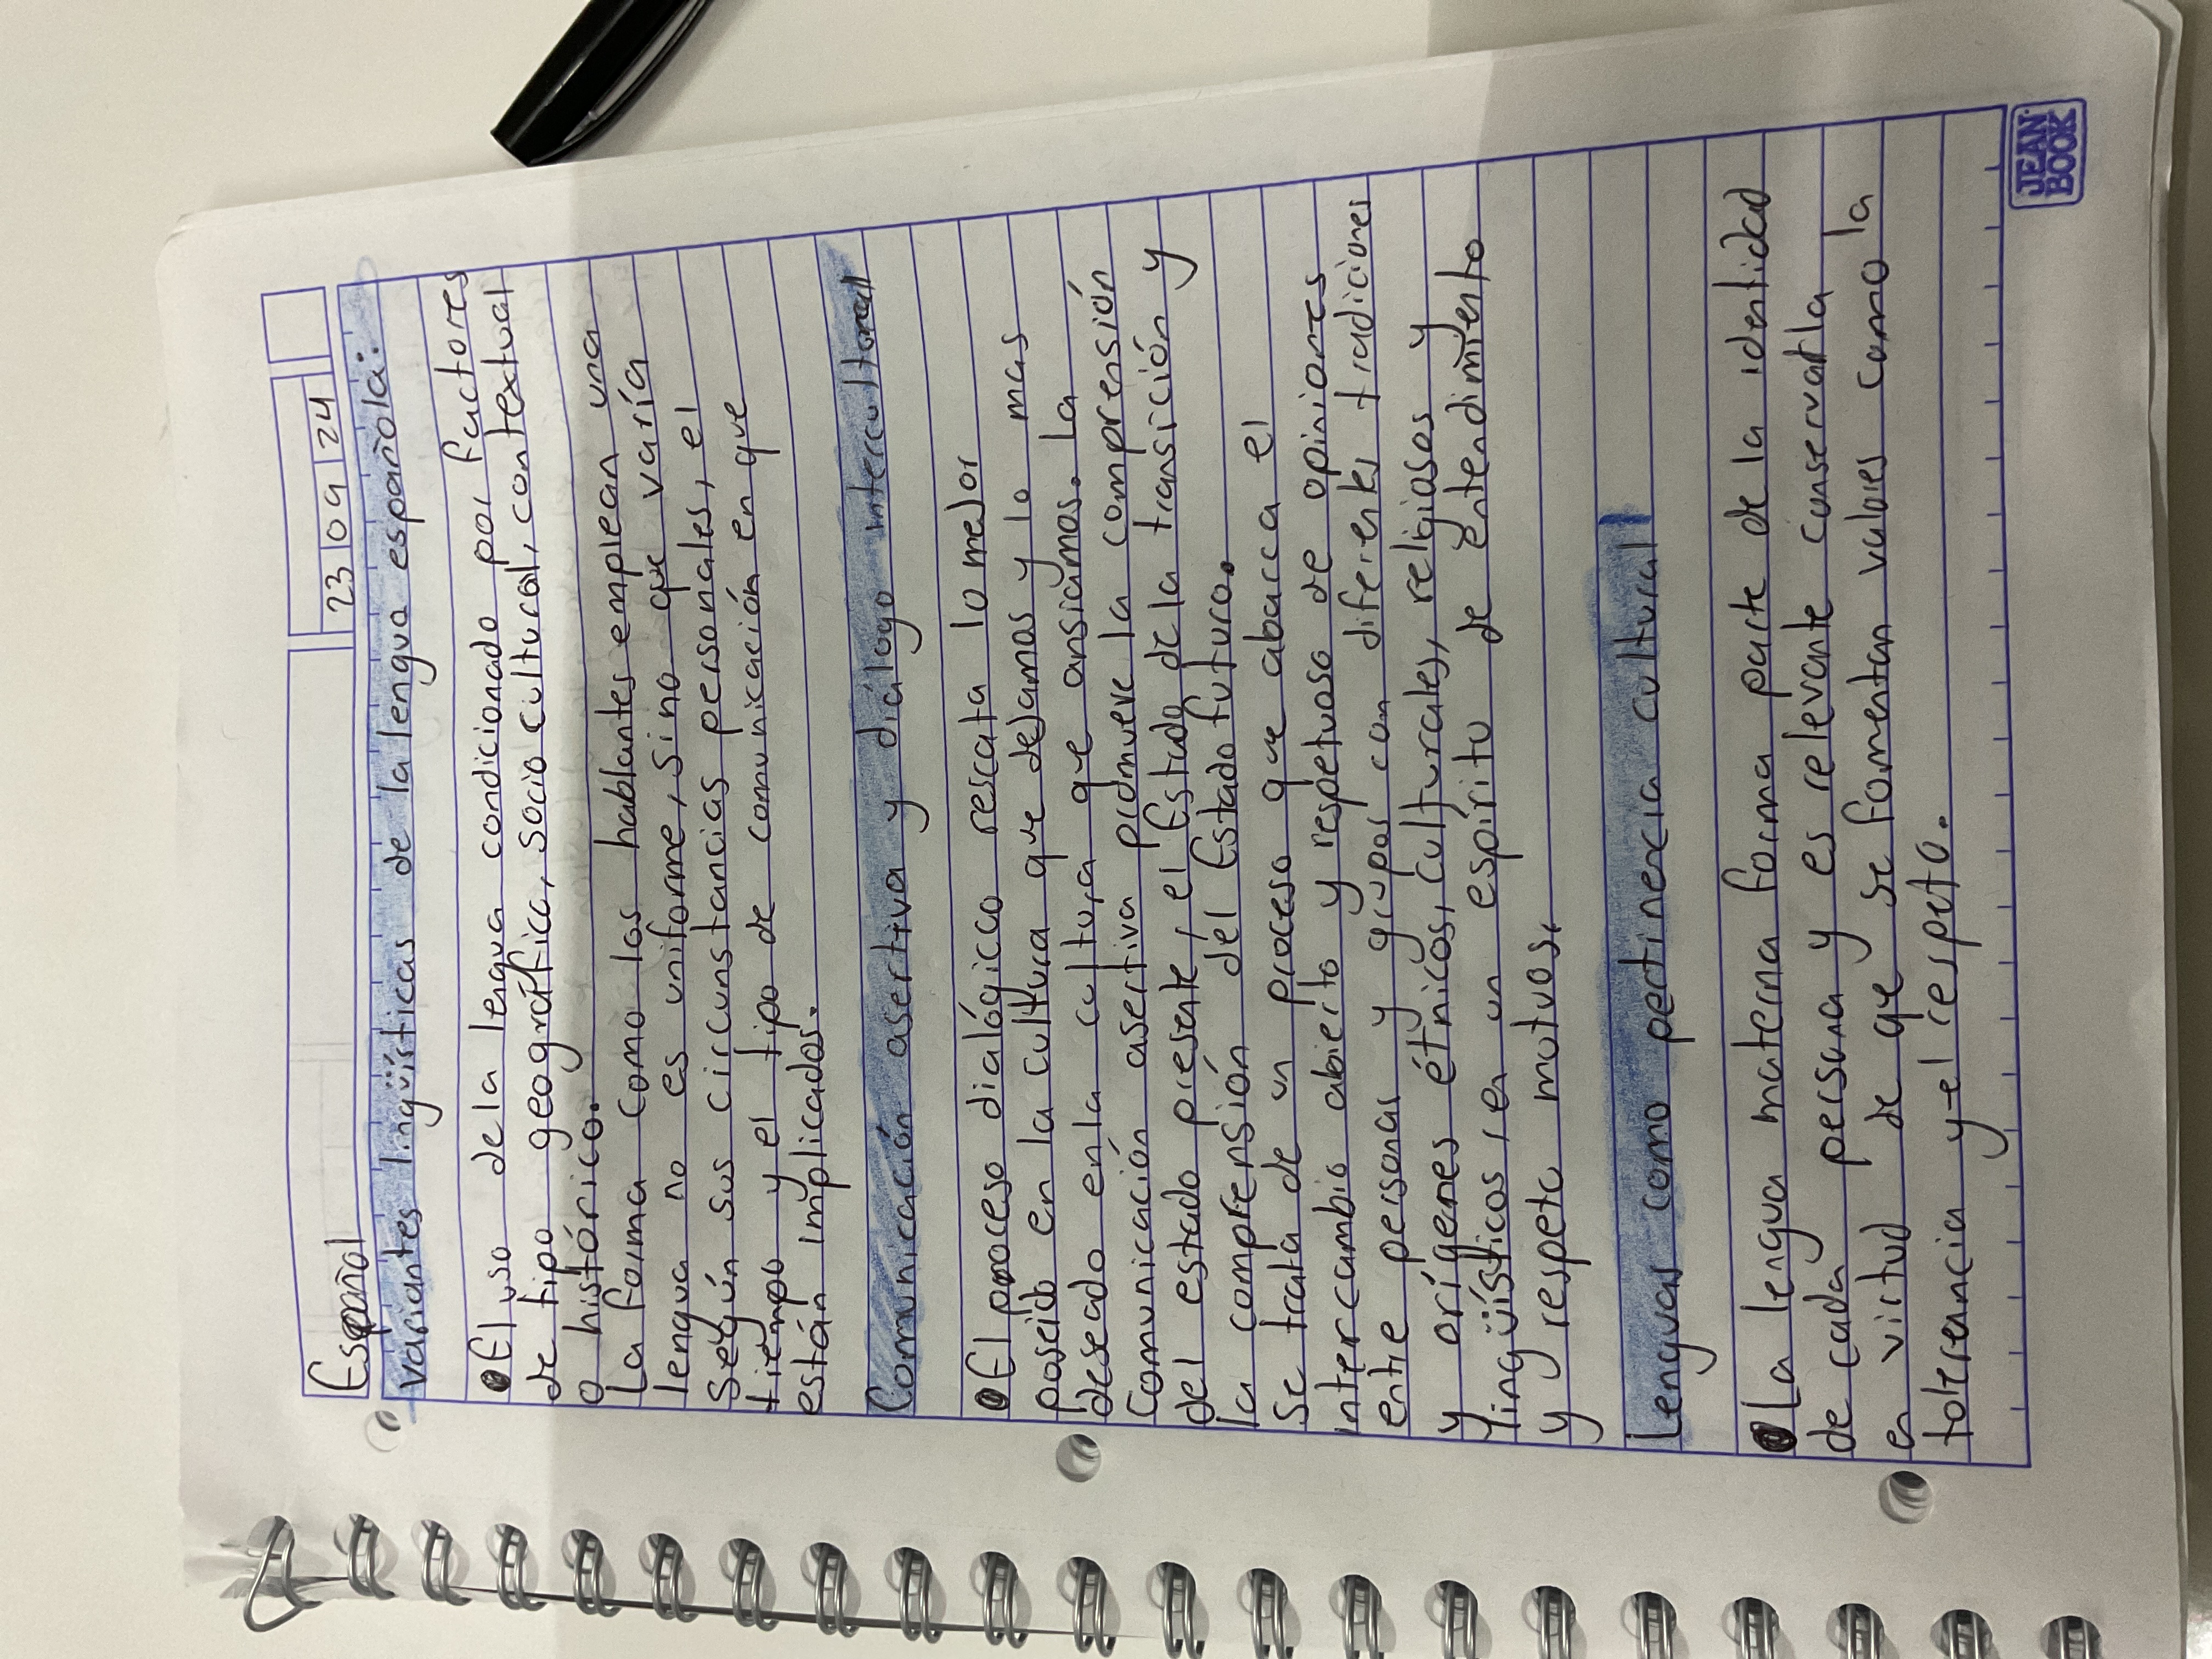 23 09 24
Español
Variantes lingüísticas de la lengua española:
El uso de la lengua condicionado por factores
de tipo geográfico, socio cultural, contextual
o histórico.
La forma como los hablantes emplean una
lengua no es uniforme, sino que varía
según sus circunstancias personales, el
tiempo y el tipo de comunicación en que
están implicados.
Comunicación asertiva y diálogo intercultural
El proceso dialógico rescata lo mejor
poseido en la cultura que dejamos y lo mas
deseado en la cultura que ansiamos. La
Comunicación asertiva promueve la comprensión
del estado presente, el Estado de la transición y
la comprensión del Estado futuro.
Se trata de un proceso que abarca el
intercambio abierto y respetuoso de opiniones
entre personas y grupos con diferentes tradiciones
y orígenes étnicos, culturales, religiosos y
lingüísticos, en un espíritu de entendimiento
y respeto mutuos.
Lenguas como pertinencia cultural
La lengua materna forma parte de la identidad
de cada persona y es relevante conservarla
en virtud de que se fomentan valores como la
tolerancia y el respeto.
JEAN
BOOK